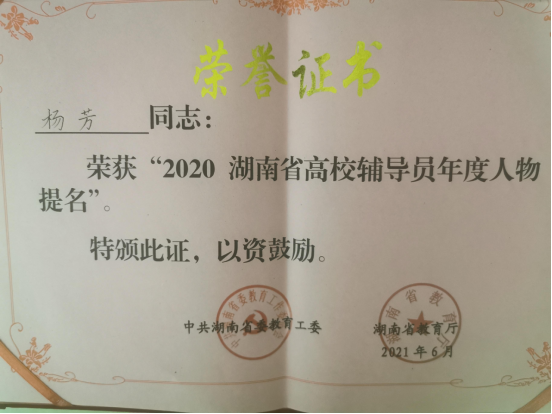 荣誉证书
杨芳 同志：
荣获“2020 湖南省高校辅导员年度人物
提名”。
特颁此证，以资鼓励。
中共湖南省委教育工委 湖南省教育厅
2021年6月